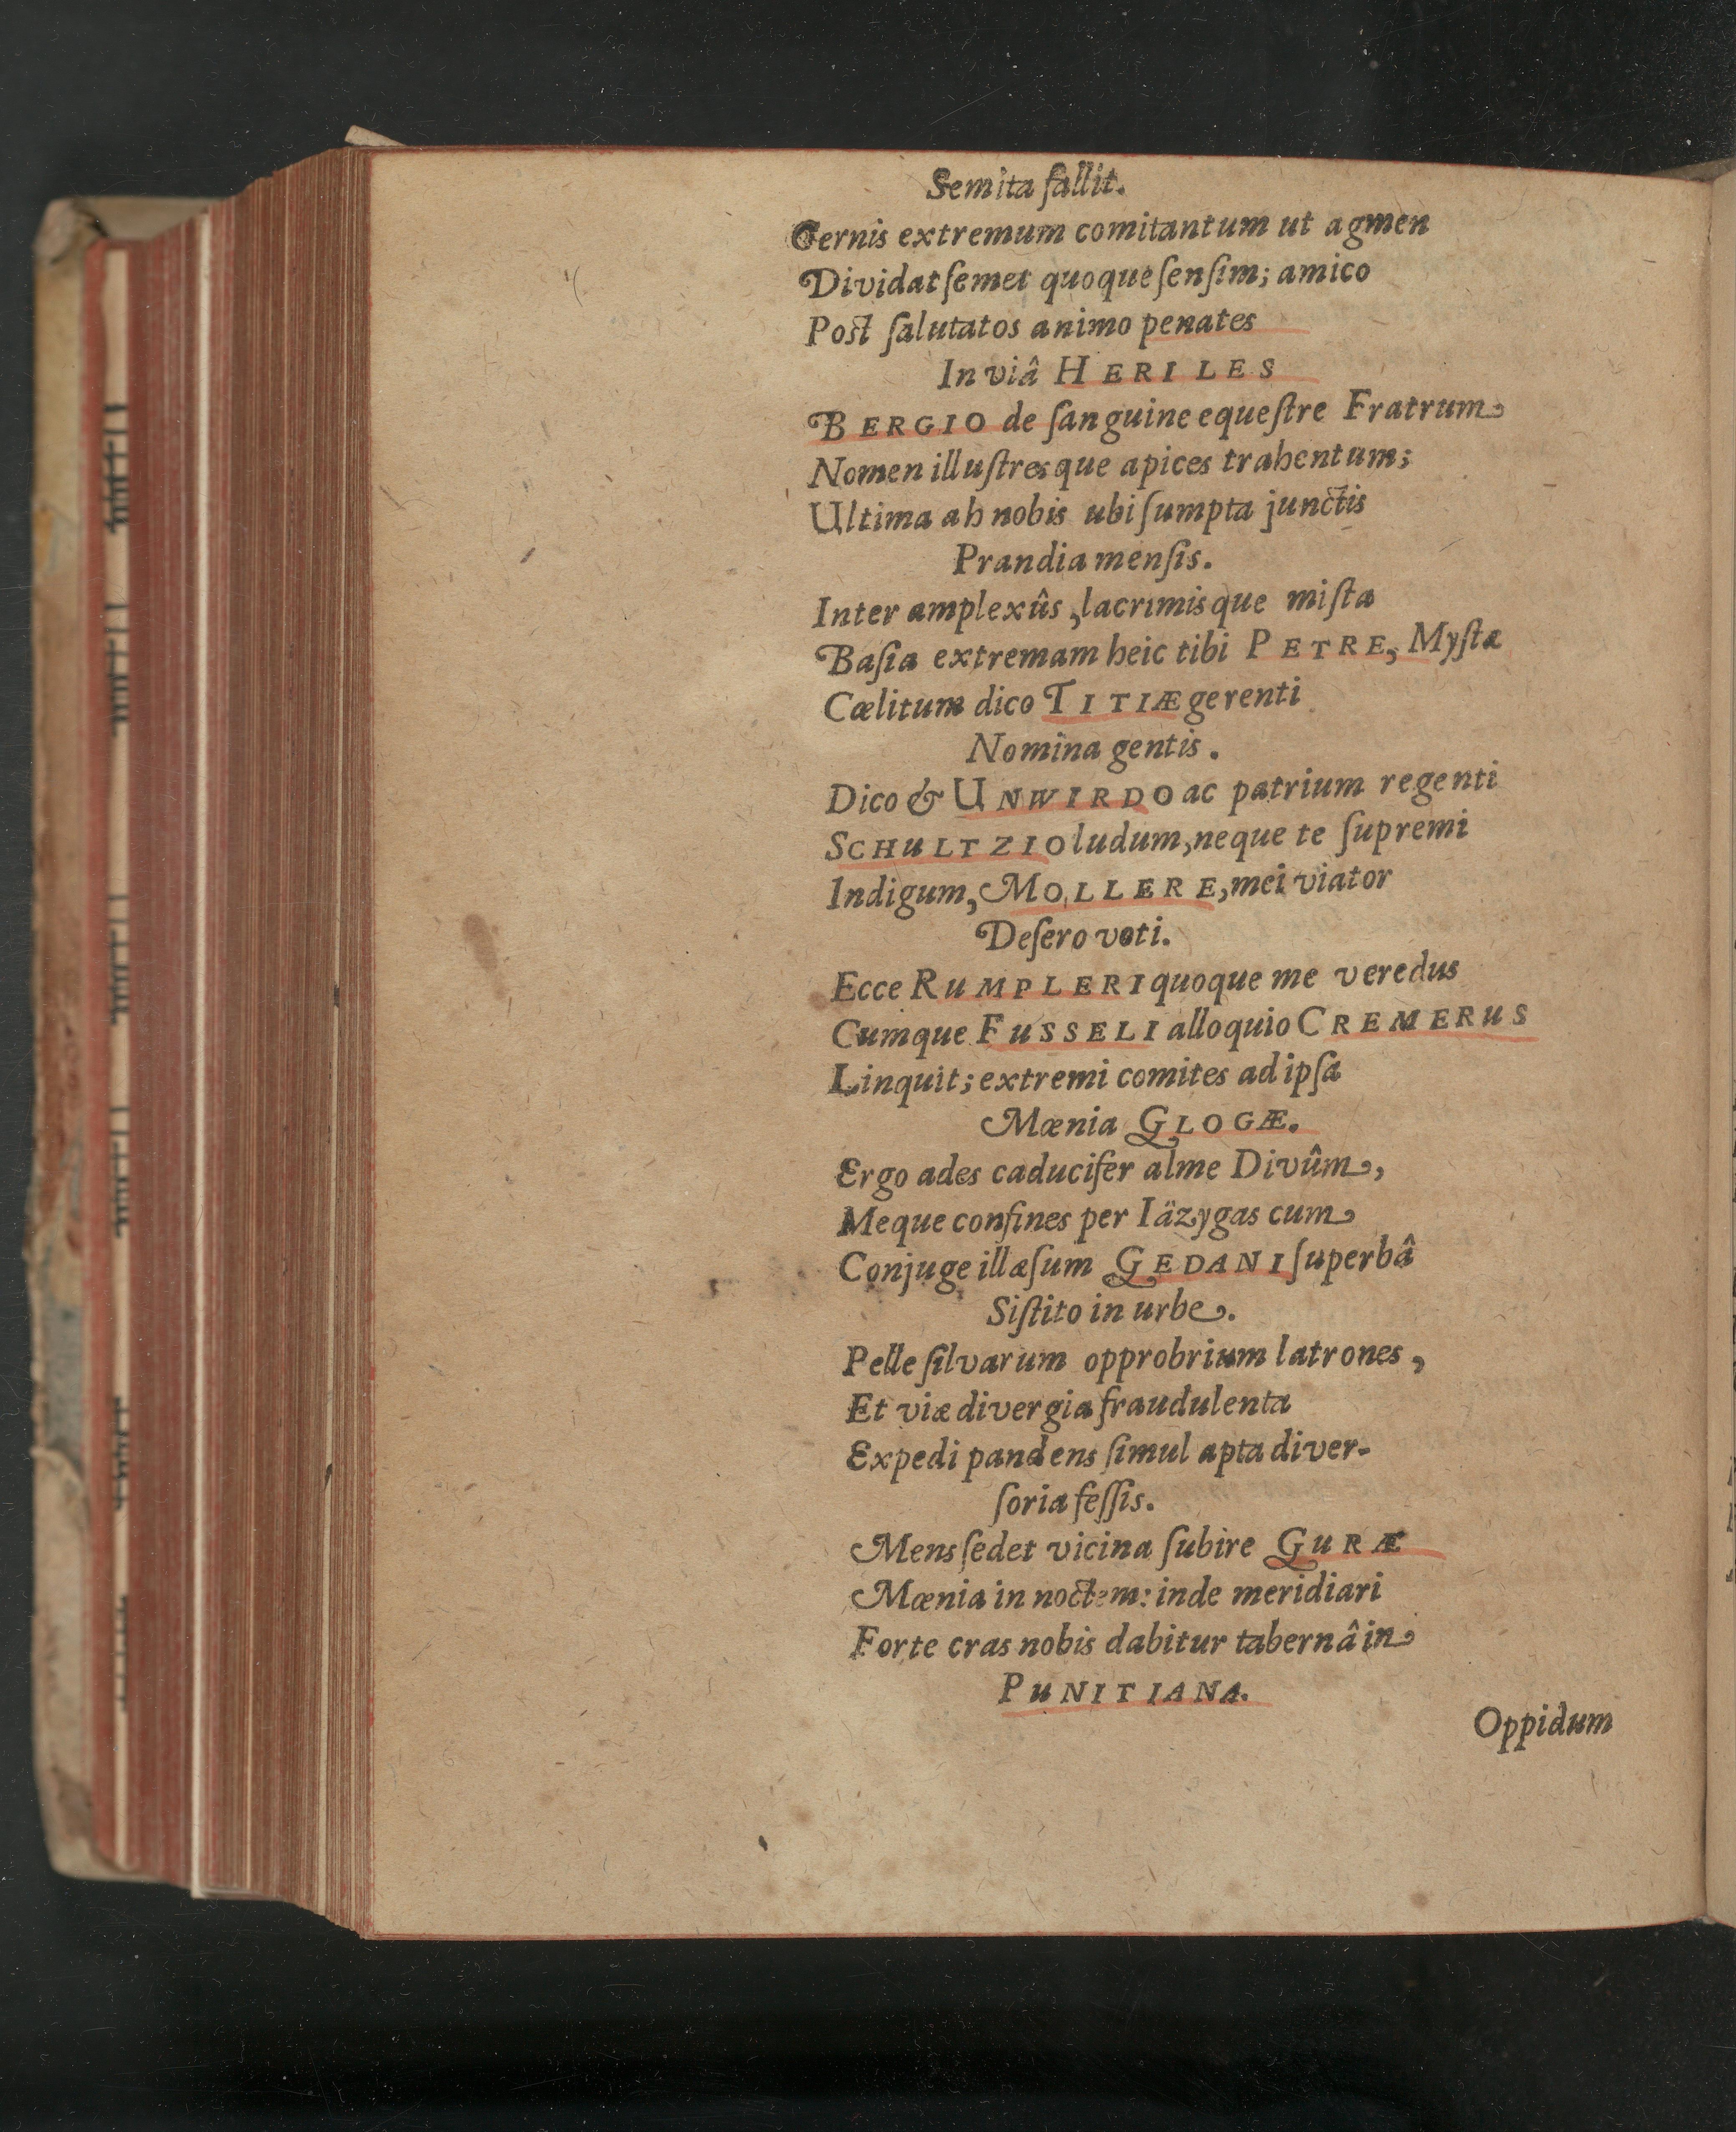 Semita fallit.
Cernis extremum comitantum ut agmen
Dividat ſemet quoque ſenſim; amico
Post ſalutatos animo penates
In viâ HERILES
BERGIO de ſanguine equeſtre Fratrum
Nomen illuſtresque apices trahentum;
Ultima ah nobis ubi ſumpta junctis
Prandia menſis.
Inter amplexûs, lacrimisque miſta
Baſia extremam heic tibi PETRE, Myſtæ
Cœlitum dico TITIÆ gerenti
Nomina gentis.
Dico & UNWIRDO ac patrium regenti
SCHULTZIO ludum, neque te ſupremi
Indigum, MOLLERE, mei viator
Deſero voti.
Ecce RUMPLERI quoque me veredus
Cumque FUSSELI alloquio CREMERUS
Linquit; extremi comites ad ipſa
Mœnia GLOGÆ.
Ergo ades caducifer alme Divûm,
Meque confines per Iäzygas cum
Conjuge illæſum GEDANI ſuperbâ
Siſtito in urbe.
Pelle ſilvarum opprobrium latrones,
Et viæ divergia fraudulenta
Expedi pandens ſimul apta diver-
ſoria feſſis.
Mens ſedet vicina ſubire GURÆ
Mœnia in noctem: inde meridiari
Forte cras nobis dabitur tabernâ in
PUNITIANA.
Oppidum